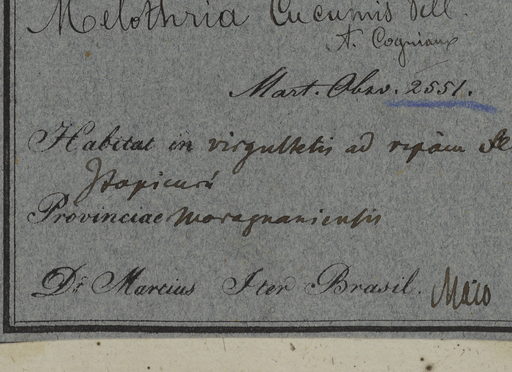 Melothria Cucumis Vell.
A. Cogniaux
Mart. Obsv. 2551.
Habitat in virgultetis ad ripam fl.
Itapicurú
Provinciae Maragnaniensis
Dr. Marcius Iter Brasil. Majo